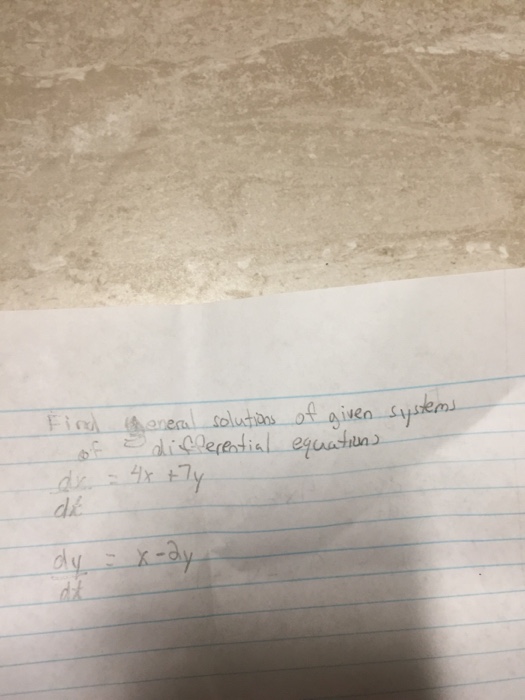 Find general solutions of given systems
of differential equations
dx = 4x +7y
dt
dy = x-2y
dt